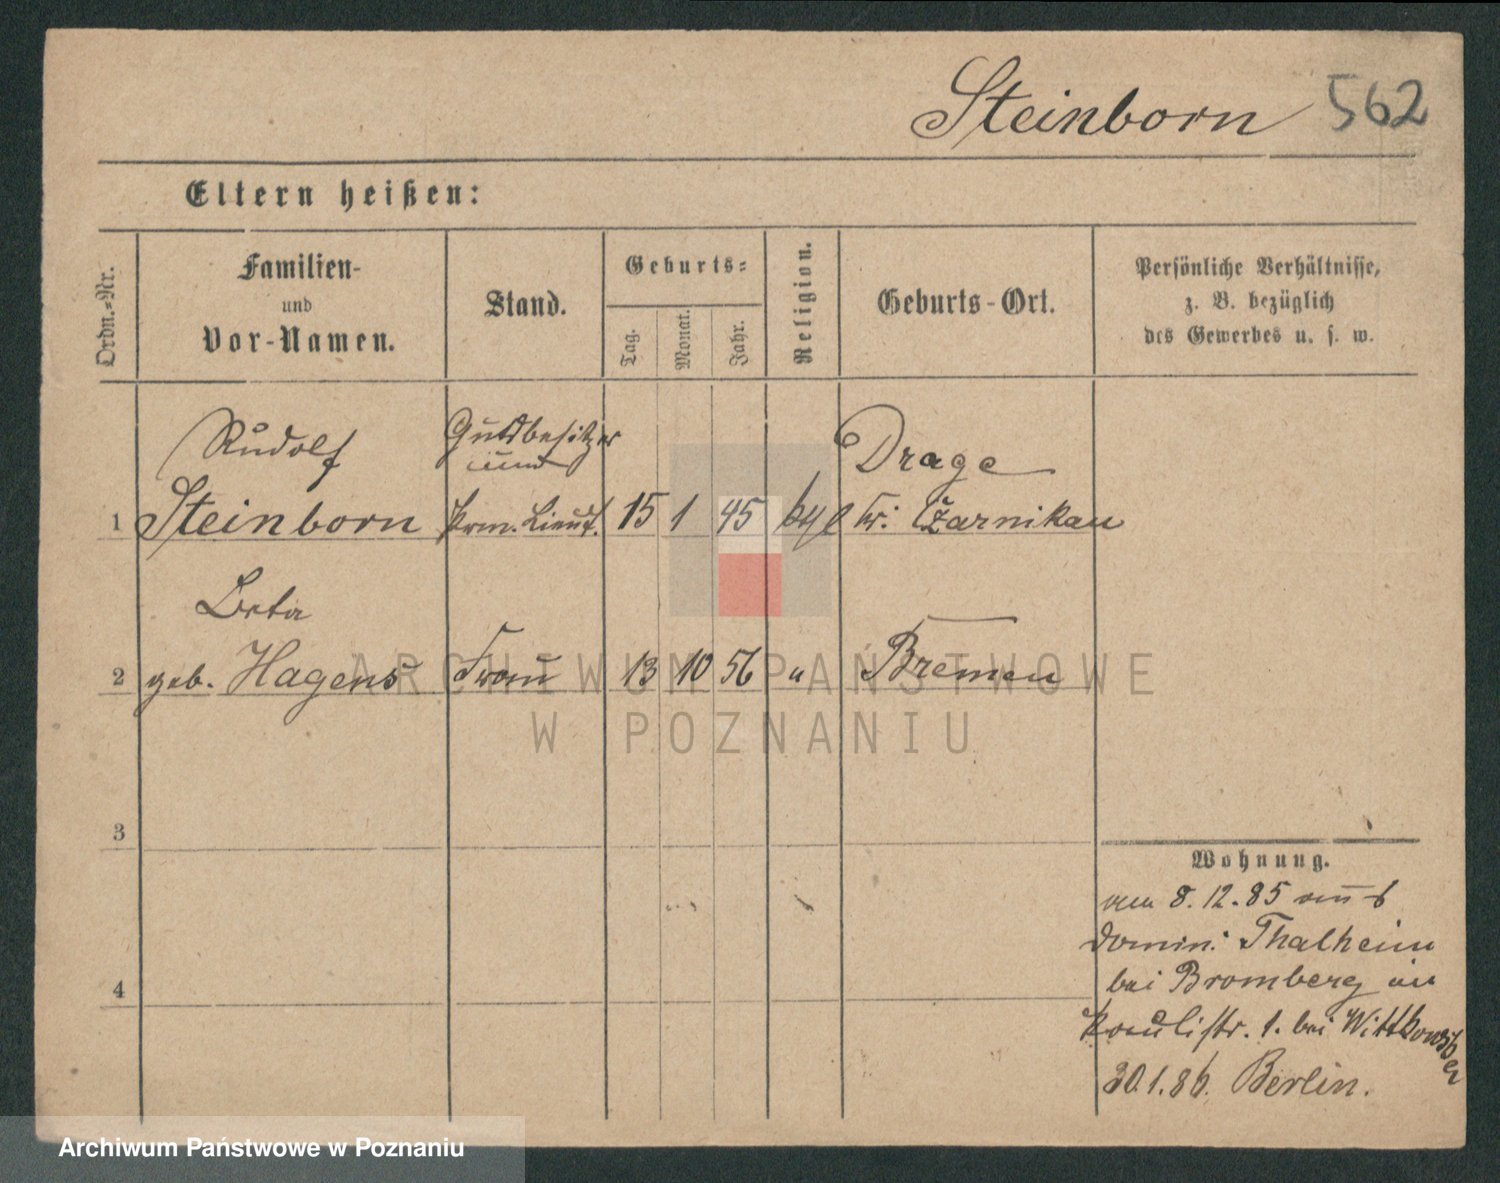 Steinborn 562
Eltern heißen:
Ordn.-Nr.
Familien-
und
Vor-Namen.
Stand.
Geburts-
Tag.
Monat.
Jahr.
Religion.
Geburts-Ort.
Persönliche Verhältnisse,
z. B. bezüglich
des Gewerbes u. s. w.
Rudolf
Gutsbesitzer
und
Drage
1 Steinborn
Prm. Lieut.
15 1 45
Kr. Czarnikau
2 geb. Hagens
Frau
13 10 56
"
Bremen
3
4
Wohnung.
8.12.85
Domin. Thalheim
bei Bromberg in
Paulistr. 1. bei Wittkowski
30.1.86. Berlin.
ARCHIWUM PAŃSTWOWE
W POZNANIU
Archiwum Państwowe w Poznaniu